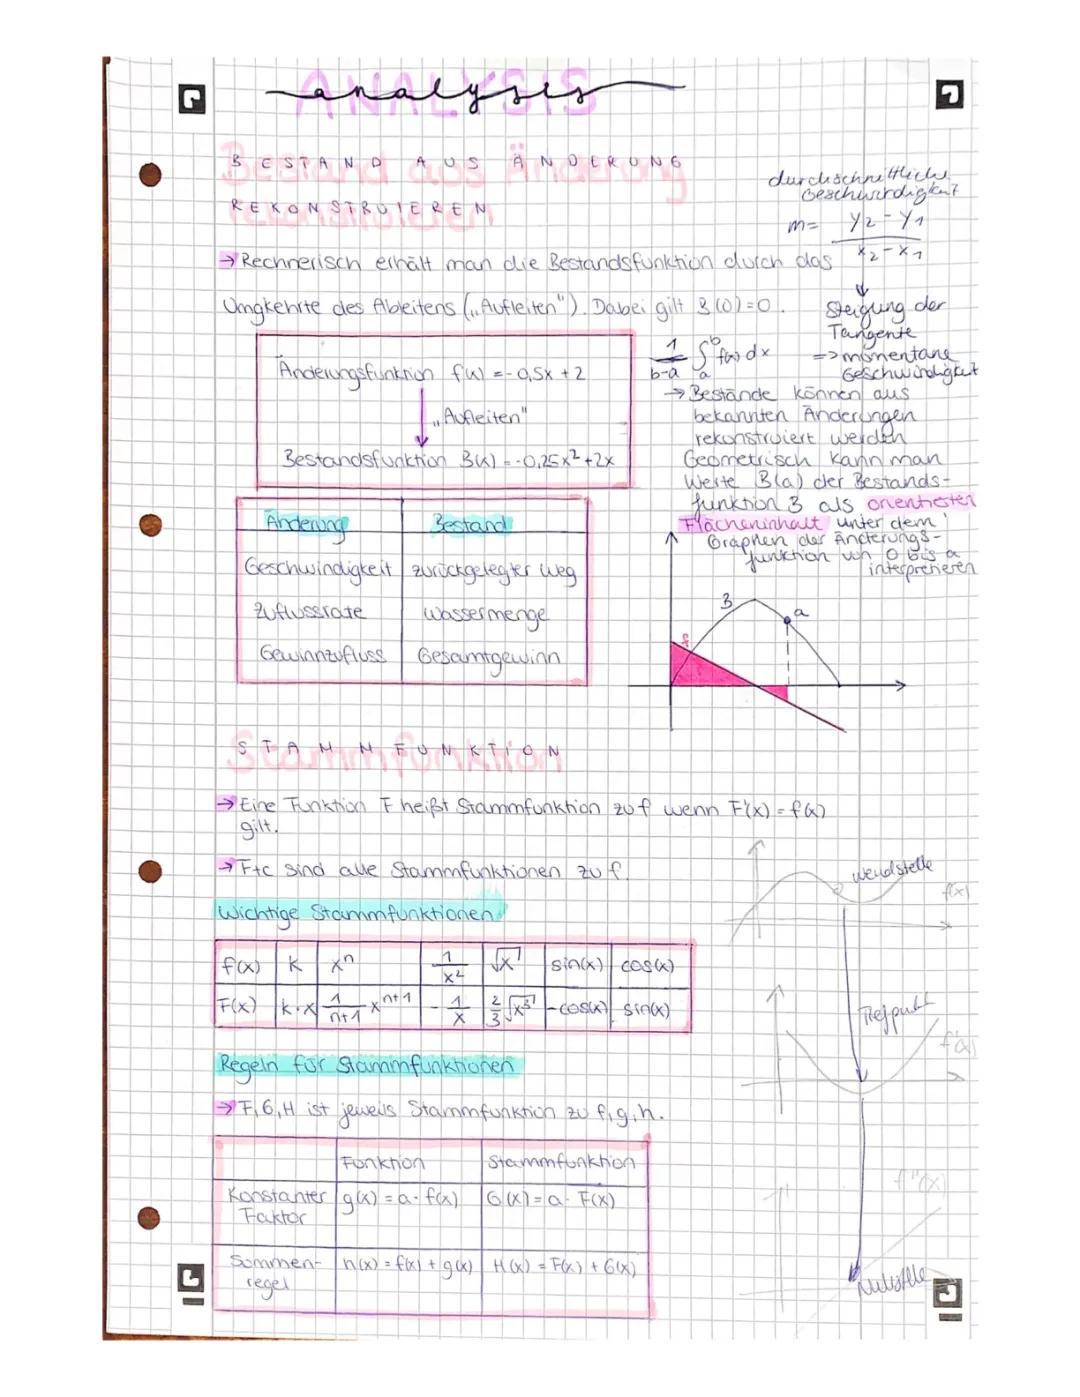 ANALYSIS
analysis
BESTAND AUS ÄNDERUNG
REKONSTRUIEREN
durchschnittliche
Geschwindigkeit
m= y2-y1
x2-x1
→ Rechnerisch erhält man die Bestandsfunktion durch das
Umgekehrte des Ableitens („Aufleiten"). Dabei gilt B(0)=0.
Steigung der
Tangente
=> momentane
Geschwindigkeit
1/b-a ∫ab f(x) dx
Änderungsfunktion f(x) = -0,5x+2
„Aufleiten"
Bestandsfunktion B(x) = -0,25x²+2x
→ Bestände können aus
bekannten Änderungen
rekonstruiert werden
Geometrisch kann man
Werte B(a) der Bestands-
funktion B als orientierten
Flächeninhalt unter dem
Graphen der Änderungs-
funktion von 0 bis a
interpretieren
Änderung Bestand
Geschwindigkeit zurückgelegter Weg
Zuflussrate Wassermenge
Gewinnzufluss Gesamtgewinn
B
a
STAMMFUNKTION
→ Eine Funktion F heißt Stammfunktion zu f wenn F'(x) = f(x)
gilt.
→ F+c sind alle Stammfunktionen zu f.
Wichtige Stammfunktionen
f(x) k xⁿ 1/x² √x sin(x) cos(x)
F(x) k·x 1/n+1 xⁿ⁺¹ -1/x 2/3 √x³ -cos(x) sin(x)
Wendstelle
f(x)
Tiefpunkt
f'(x)
f''(x)
Nullstelle
Regeln für Stammfunktionen
→ F, G, H ist jeweils Stammfunktion zu f, g, h.
Funktion Stammfunktion
Konstanter g(x) = a · f(x) G(x) = a · F(x)
Faktor
Summen- h(x) = f(x) + g(x) H(x) = F(x) + G(x)
regel